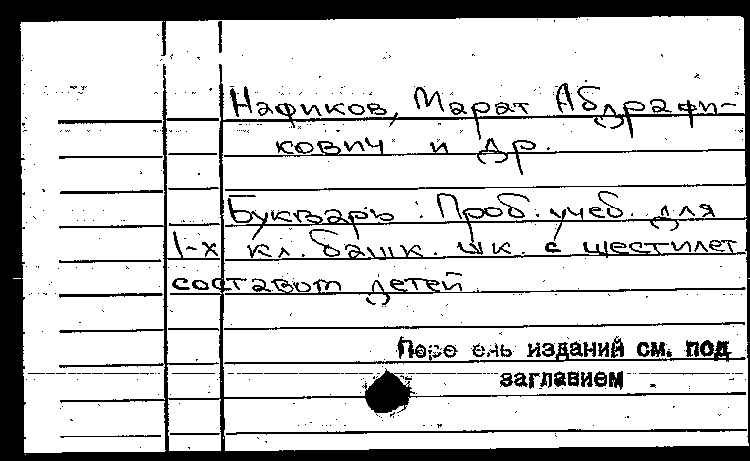 Нафиков, Марат Абдрафи-
кович и др.
Букварь : Проб. учеб. для
1-х кл. башк. шк. с шестилет
составом детей
изданий см. под
заглавием